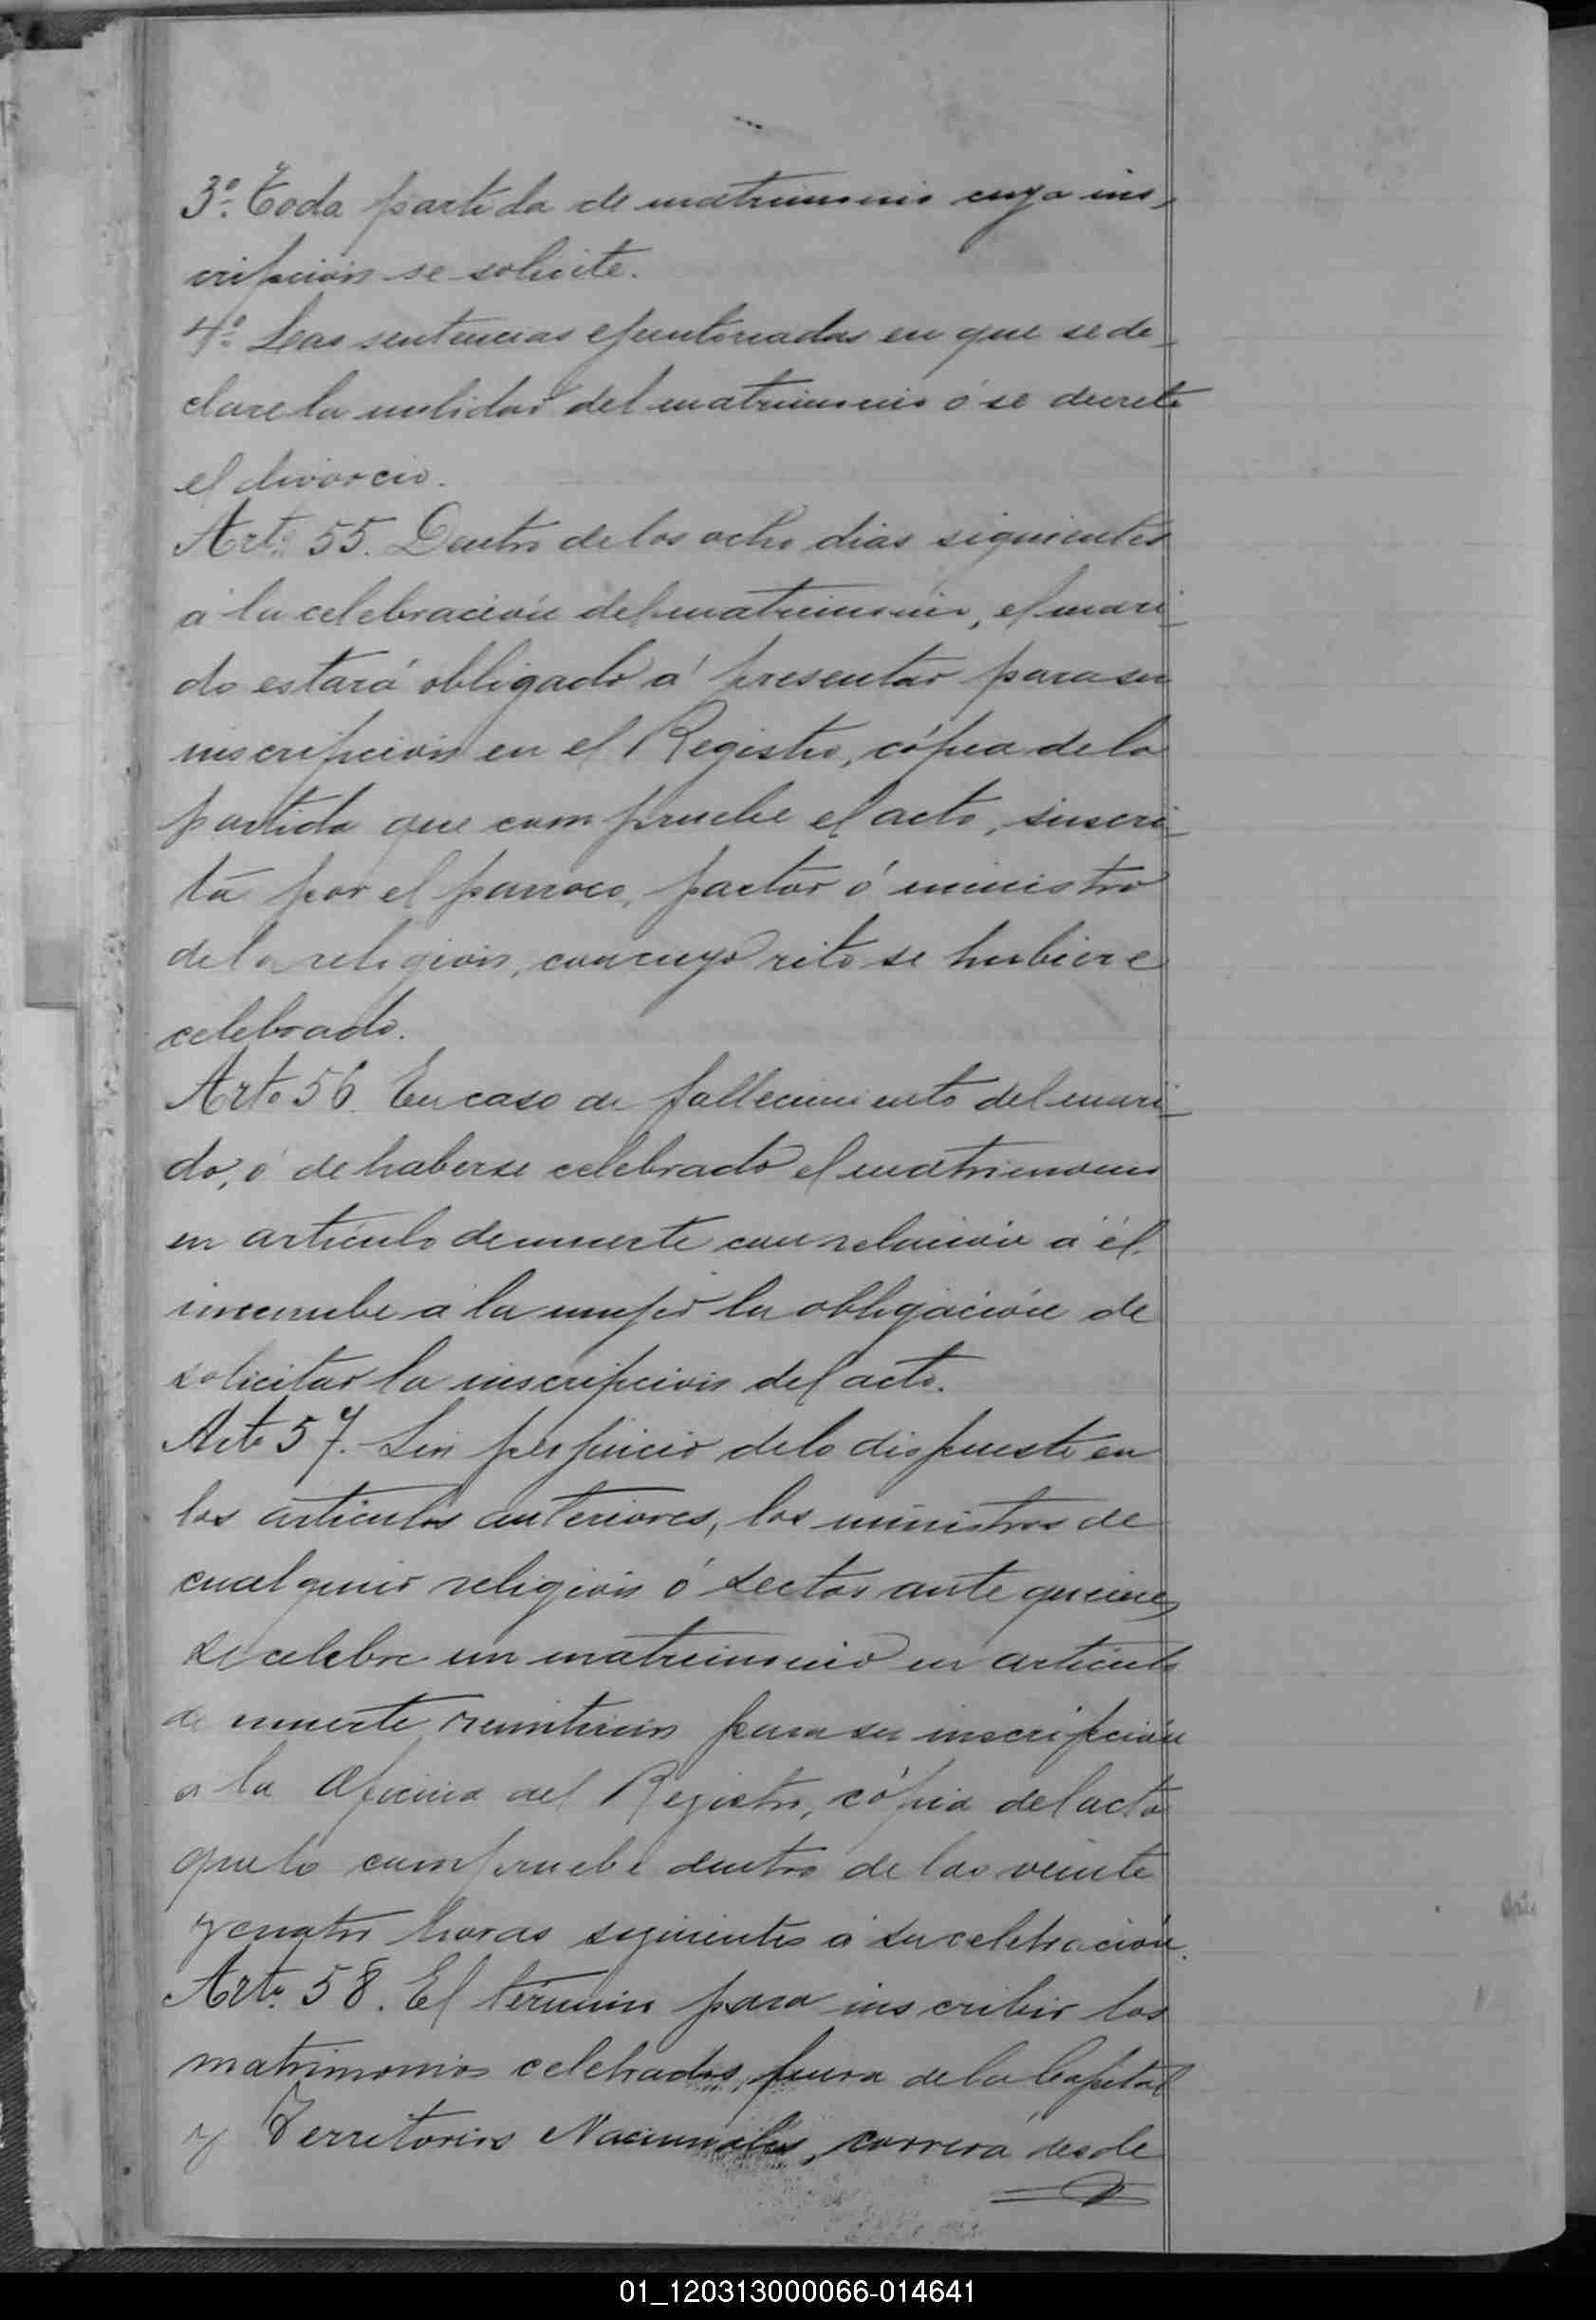 3º Toda partida de matrimonio cuya ins-
cripcion se solicite.
4º Las sentencias ejecutoriadas en que se de-
clare la nulidad del matrimonio ó se decrete
el divorcio.
Artº 55. Dentro de los ocho dias siguientes
á la celebración del matrimonio, el mari-
do estará obligado á presentar para su
inscripción en el Registro, cópia de la
partida que compruebe el acto, suscri-
ta por el parroco, pastor ó ministro
de la religion, con cuyo rito se hubiere
celebrado.
Arto 56. En caso de fallecimiento del mari-
do, ó de haberse celebrado el matrimonio
en artículo de muerte con relación á él.
incumbe á la mujer la obligación de
solicitar la inscripcion del acto.
Arto 57. Sin perjuicio de lo dispuesto en
los artículos anteriores, los ministros de
cualquier religion ó sectas ante quienes
se celebre un matrimonio en artículo
de muerte remitirán para su inscripción
á la Oficina del Registro, cópia del acta
que lo compruebe dentro de las veinte
y cuatro horas siguientes á su celebración.
Artº 58. El término para inscribir los
matrimonios celebrados, fuera de la Capital
y Territorios Nacionales, correrá desde
01_120313000066-014641